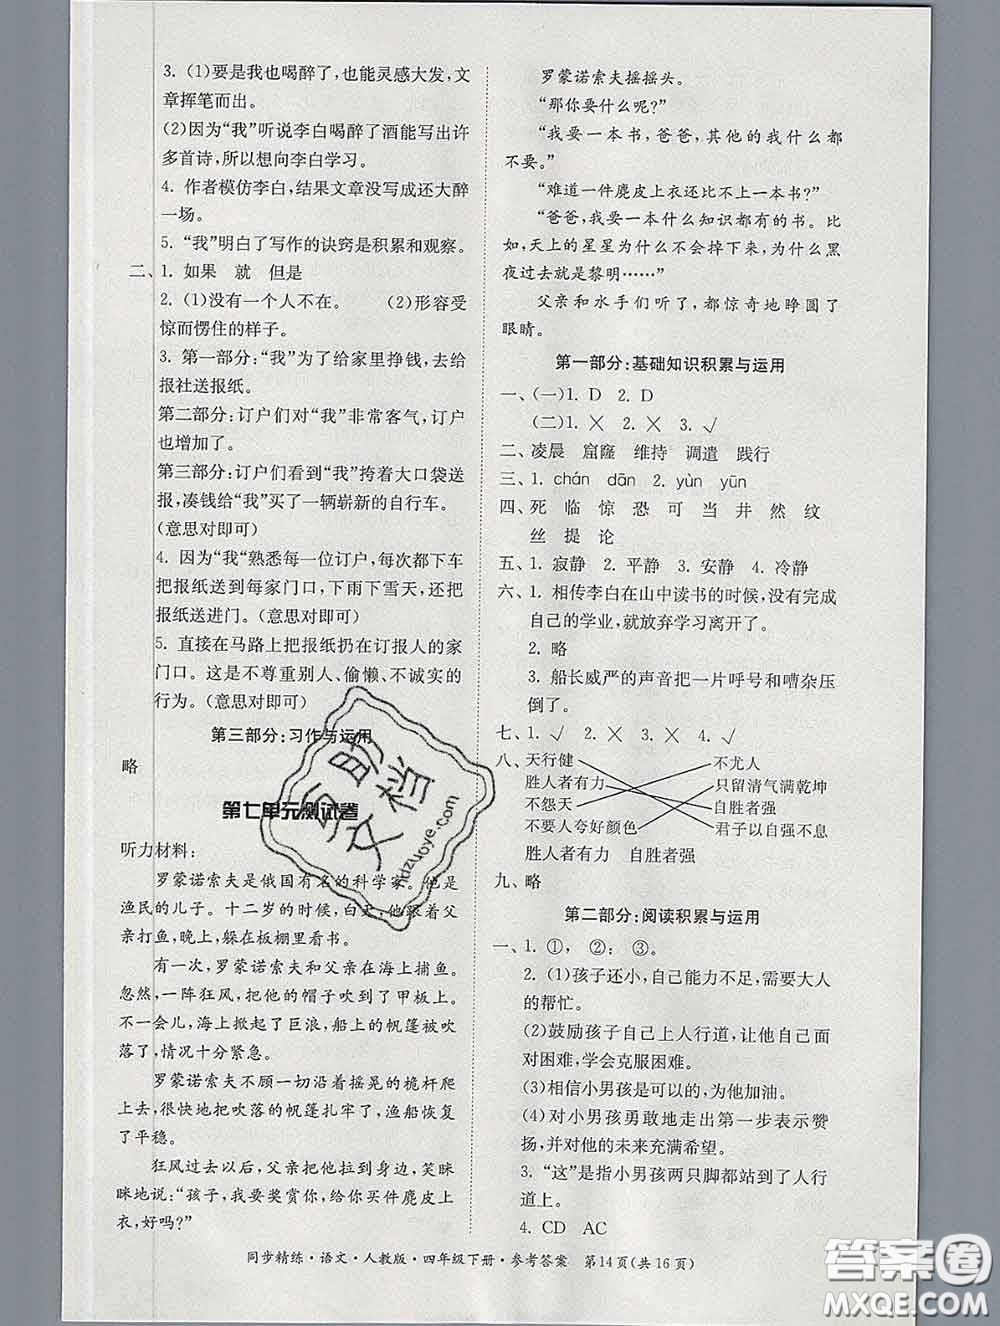 3. (1)要是我也喝醉了,也能灵感大发,文
章挥笔而出。
(2)因为“我”听说李白喝醉了酒能写出许
多首诗,所以想向李白学习。
4. 作者模仿李白,结果文章没写成还大醉
一场。
5. “我”明白了写作的诀窍是积累和观察。
二、1. 如果 就 但是
2. (1)没有一个人不在。 (2)形容受
惊而愣住的样子。
3. 第一部分:“我”为了给家里挣钱,去给
报社送报纸。
第二部分:订户们对“我”非常客气,订户
也增加了。
第三部分:订户们看到“我”挎着大口袋送
报,凑钱给“我”买了一辆崭新的自行车。
(意思对即可)
4. 因为“我”熟悉每一位订户,每次都下车
把报纸送到每家门口,下雨下雪天,还把
报纸送进门。(意思对即可)
5. 直接在马路上把报纸扔在订报人的家
门口。这是不尊重别人、偷懒、不诚实的
行为。(意思对即可)
第三部分:习作与运用
略
第七单元测试卷
听力材料:
罗蒙诺索夫是俄国有名的科学家。他是
渔民的儿子。十二岁的时候,白天,他跟着父
亲打鱼,晚上,躲在板棚里看书。
有一次,罗蒙诺索夫和父亲在海上捕鱼。
忽然,一阵狂风,把他的帽子吹到了甲板上。
不一会儿,海上掀起了巨浪,船上的帆篷被吹
落了,情况十分紧急。
罗蒙诺索夫不顾一切沿着摇晃的桅杆爬
上去,很快地把吹落的帆篷扎牢了,渔船恢复
了平稳。
狂风过去以后,父亲把他拉到身边,笑眯
眯地说:“孩子,我要奖赏你,给你买件麂皮上
衣,好吗?”
罗蒙诺索夫摇摇头。
“那你要什么呢?”
“我要一本书,爸爸,其他的我什么都
不要。”
“难道一件麂皮上衣还比不上一本书?”
“爸爸,我要一本什么知识都有的书。比
如,天上的星星为什么不会掉下来,为什么黑
夜过去就是黎明……”
父亲和水手们听了,都惊奇地睁圆了
眼睛。
第一部分:基础知识积累与运用
一、(一)1. D 2. D
(二)1. ✕ 2. ✕ 3. ✓
二、凌晨 窟窿 维持 调遣 践行
三、1. chán dān 2. yùn yūn
四、死 临 惊 恐 可 当 井 然 纹
丝 提 论
五、1. 寂静 2. 平静 3. 安静 4. 冷静
六、1. 相传李白在山中读书的时候,没有完成
自己的学业,就放弃学习离开了。
2. 略
3. 船长威严的声音把一片呼号和嘈杂压
倒了。
七、1. ✓ 2. ✕ 3. ✕ 4. ✓
八、天行健 不尤人
胜人者有力 只留清气满乾坤
不怨天 自胜者强
不要人夸好颜色 君子以自强不息
胜人者有力 自胜者强
九、略
第二部分:阅读积累与运用
一、1. ①, ②: ③。
2. (1)孩子还小,自己能力不足,需要大人
的帮忙。
(2)鼓励孩子自己上人行道,让他自己面
对困难,学会克服困难。
(3)相信小男孩是可以的,为他加油。
(4)对小男孩勇敢地走出第一步表示赞
扬,并对他的未来充满希望。
3. “这”是指小男孩两只脚都站到了人行
道上。
4. CD AC
同步精练·语文·人教版·四年级下册·参考答案 第14页(共16页)
答案圈
MXQE.COM